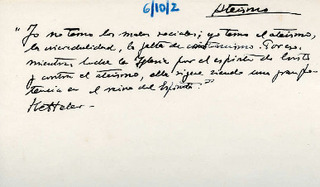 6/10/2
Ateísmo
"Yo no temo los males sociales; yo temo el ateísmo,
la incredulidad, la falta de cristianismo. Por eso,
mientras luche la Iglesia por el espíritu de Cristo
y contra el ateísmo, ella sigue siendo una gran po-
tencia en el reino del Espíritu."
Ketteler -